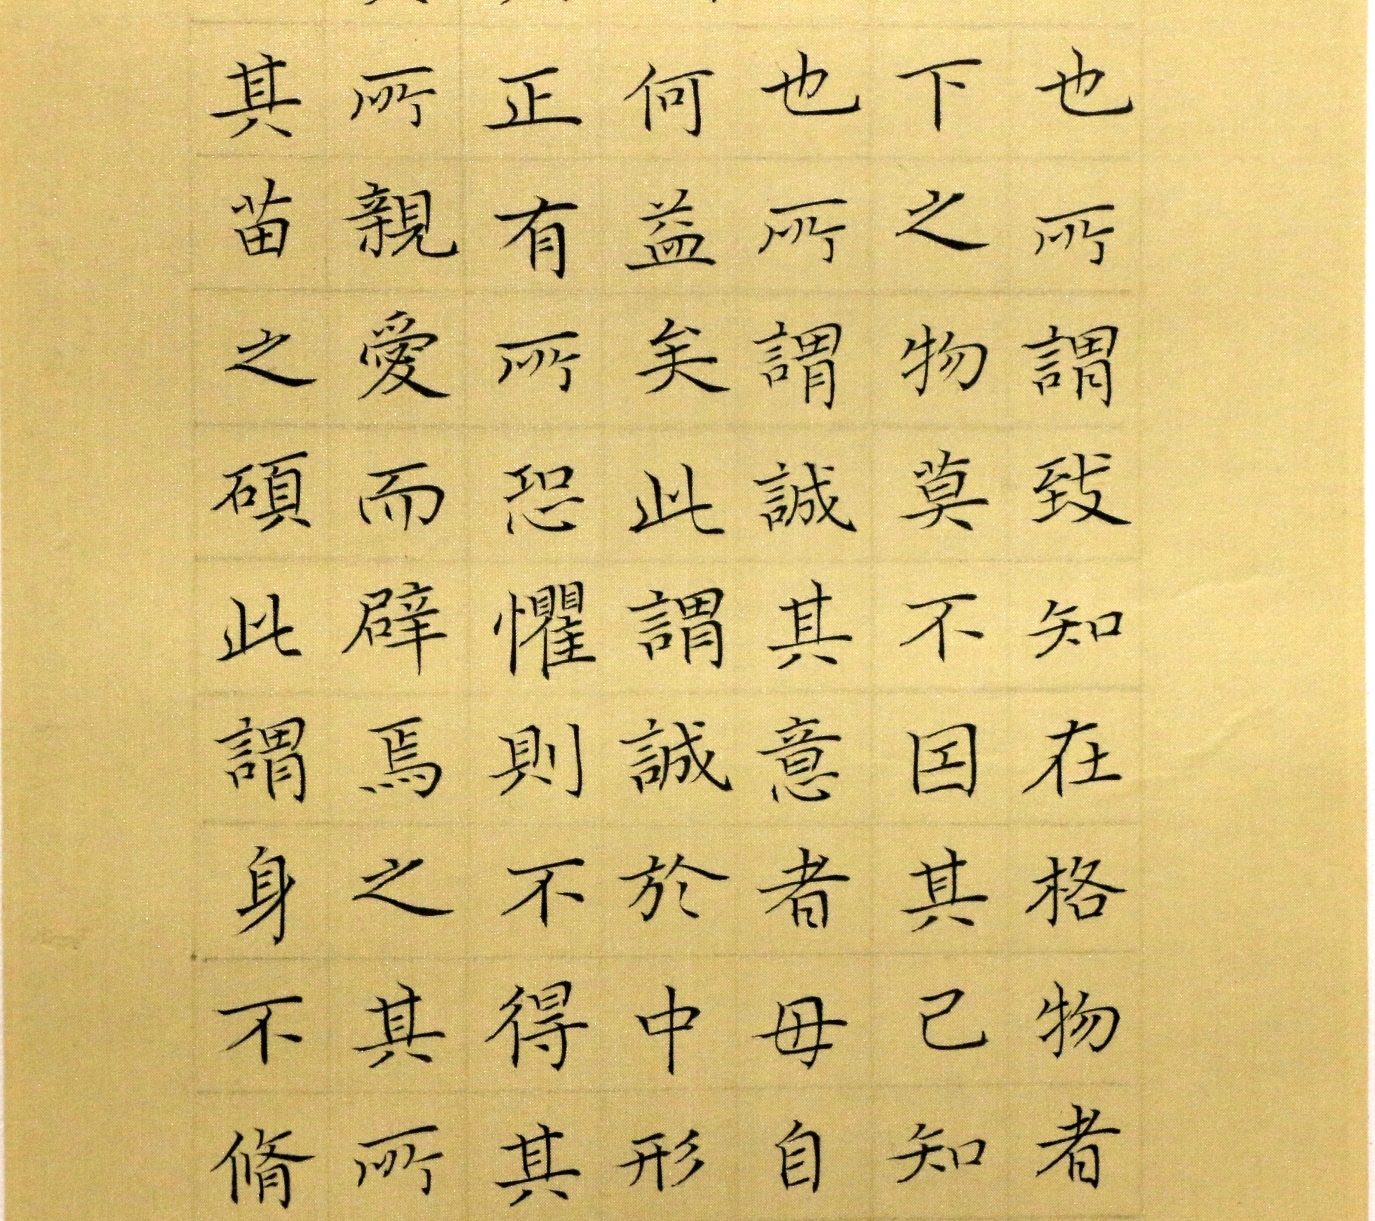 也所謂致知在格物者
下之物莫不因其已知
也所謂誠其意者毋自
何益矣此謂誠於中形
正有所恐懼則不得其
所親愛而辟焉之其所
其苗之碩此謂身不脩